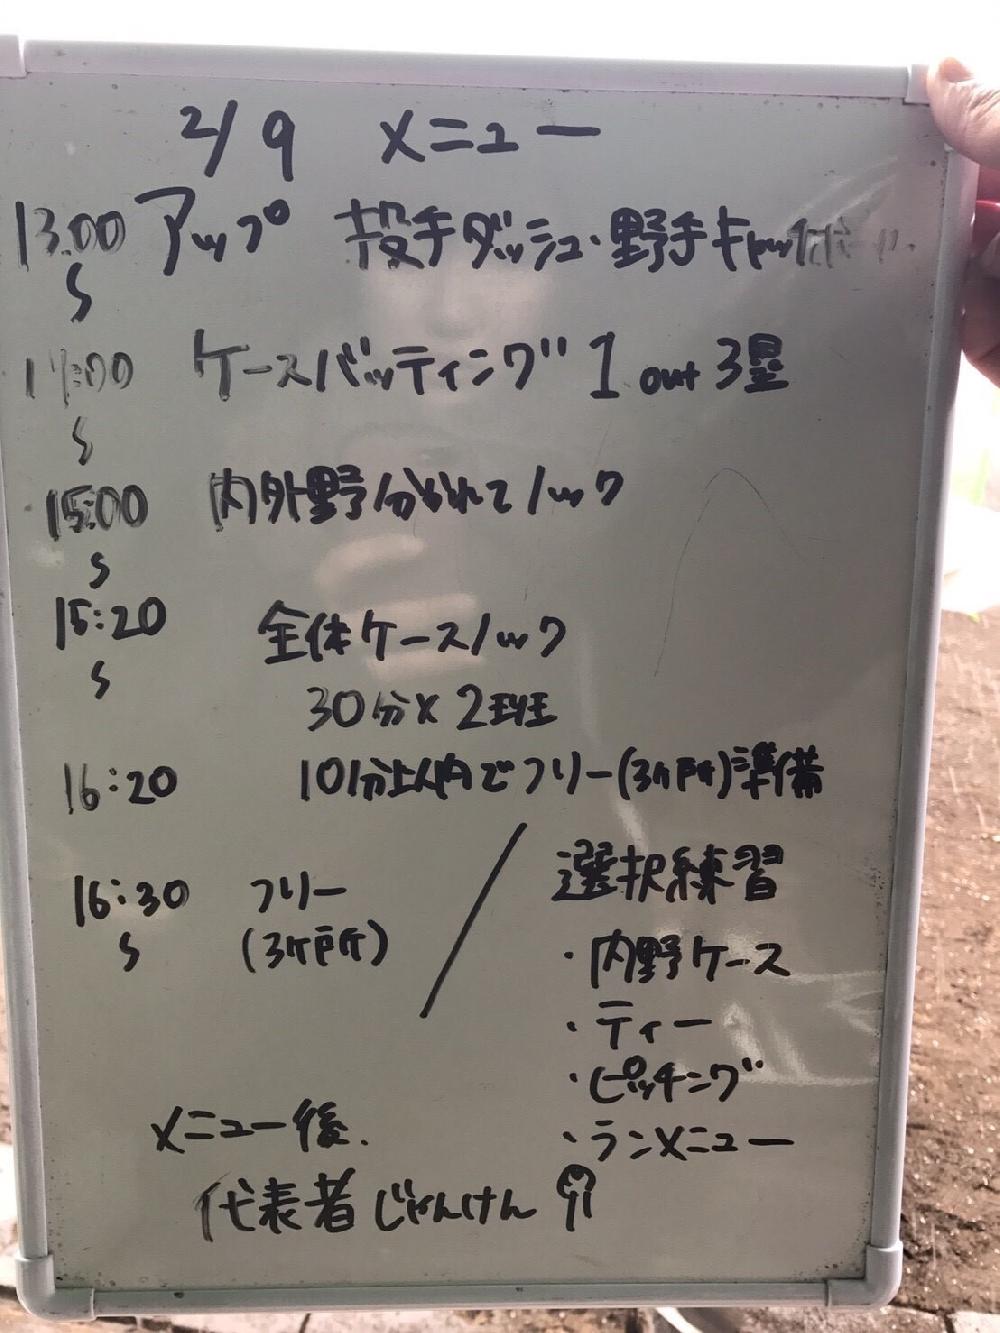 2/9 メニュー
13:00 アップ 投手ダッシュ・野手キャッチボール
S
14:00 ケースバッティング 1 out 3塁
S
15:00 内外野分かれてノック
S
15:20 全体ケースノック
S 30分×2班
16:20 10分以内でフリー(3ヶ所)準備
16:30 フリー / 選択練習
S (3ヶ所)
・内野ケース
・ティー
・ピッチング
・ランメニュー
メニュー後、
代表者じゃんけん